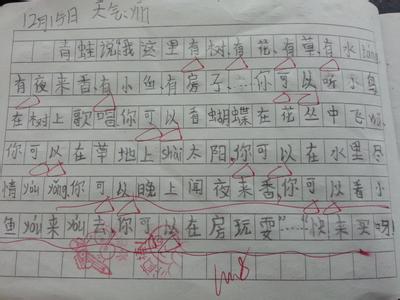 12月15日 天气晴
青蛙说"我这里有树,有花,有草,有水táng
有夜来香,有小鱼,有房子……你可以听小鸟
在树上歌唱你可以看蝴蝶在花丛中飞
你可以在草地上shài太阳,你可以在水里尽
情yóu yǒng你可以晚上闻夜来香,你可以看小
鱼yóu来yóu去你可以在房玩耍"……"快来买呀!